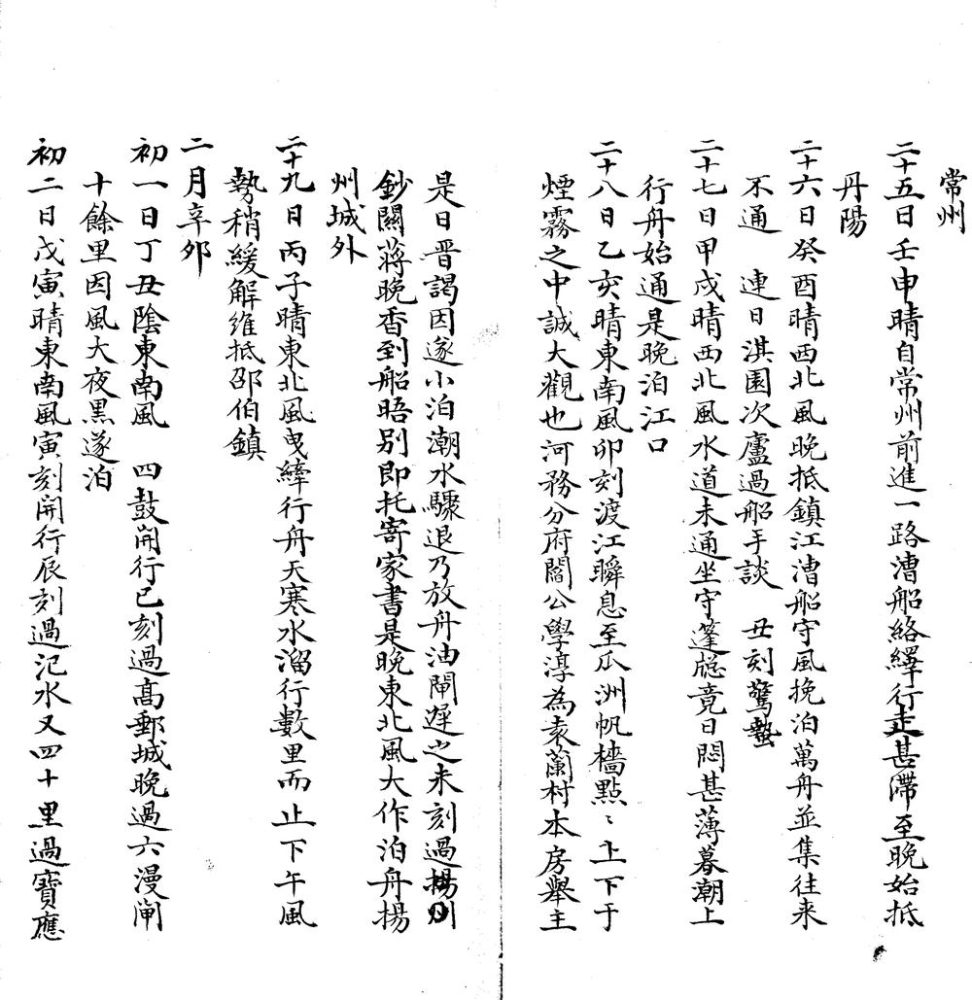 常州
二十五日壬申晴自常州前進一路漕船絡繹行走甚滯至晚始抵
丹陽
二十六日癸酉晴西北風晚抵鎮江漕船守風挽泊萬舟並集往来
不通　連日淇園次廬過船手談　丑刻驚蟄
二十七日甲戌晴西北風水道未通坐守篷牕竟日悶甚薄暮潮上
行舟始通是晚泊江口
二十八日乙亥晴東南風卯刻渡江瞬息至瓜洲帆檣點〻上下于
煙霧之中誠大觀也河務分府閻公學淳為袁蘭村本房舉主
是日晋謁因遂小泊潮水驟退乃放舟油閘遲之未刻過揚州
鈔關蔣晚香到船晤别即托寄家書是晚東北風大作泊舟揚
州城外
二十九日丙子晴東北風曳縴行舟天寒水溜行數里而止下午風
勢稍緩解維抵邵伯鎮
二月辛夘
初一日丁丑陰東南風　四鼓開行巳刻過高郵城晚過六漫閘
十餘里因風大夜黑遂泊
初二日戊寅晴東南風寅刻開行辰刻過氾水又四十里過寶應